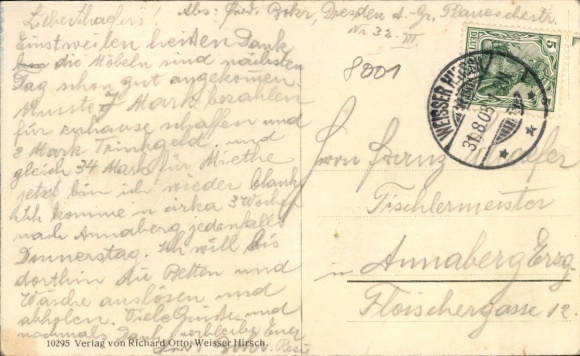 Abs: Ferd. Beker, Dresden A. Gr. Plauenschestr.
No 32. III.
Einstweilen besten Dank
die Möbeln sind nächsten
Tag schon gut angekommen.
Musste 7 Mark bezahlen
für zuhause schaffen und
2 Mark Trinkgeld, und
gleich 34 Mark für Miethe
jetzt bin ich wieder blank
Ich komme in cirka 3 Wochen
nach Annaberg jedenfalls
Donnerstag. Ich will bis
dorthin die Betten und
Wäsche auslösen und
abholen. Viele Grüße und
nochmals Dank verbleibt Euer
8001
5
WEISSER HIRSCH
31.8.05
Herrn Franz
Tischlermeister
in Annaberg Erzg.
Fleischergasse 12.
10295 Verlag von Richard Otto, Weisser Hirsch.